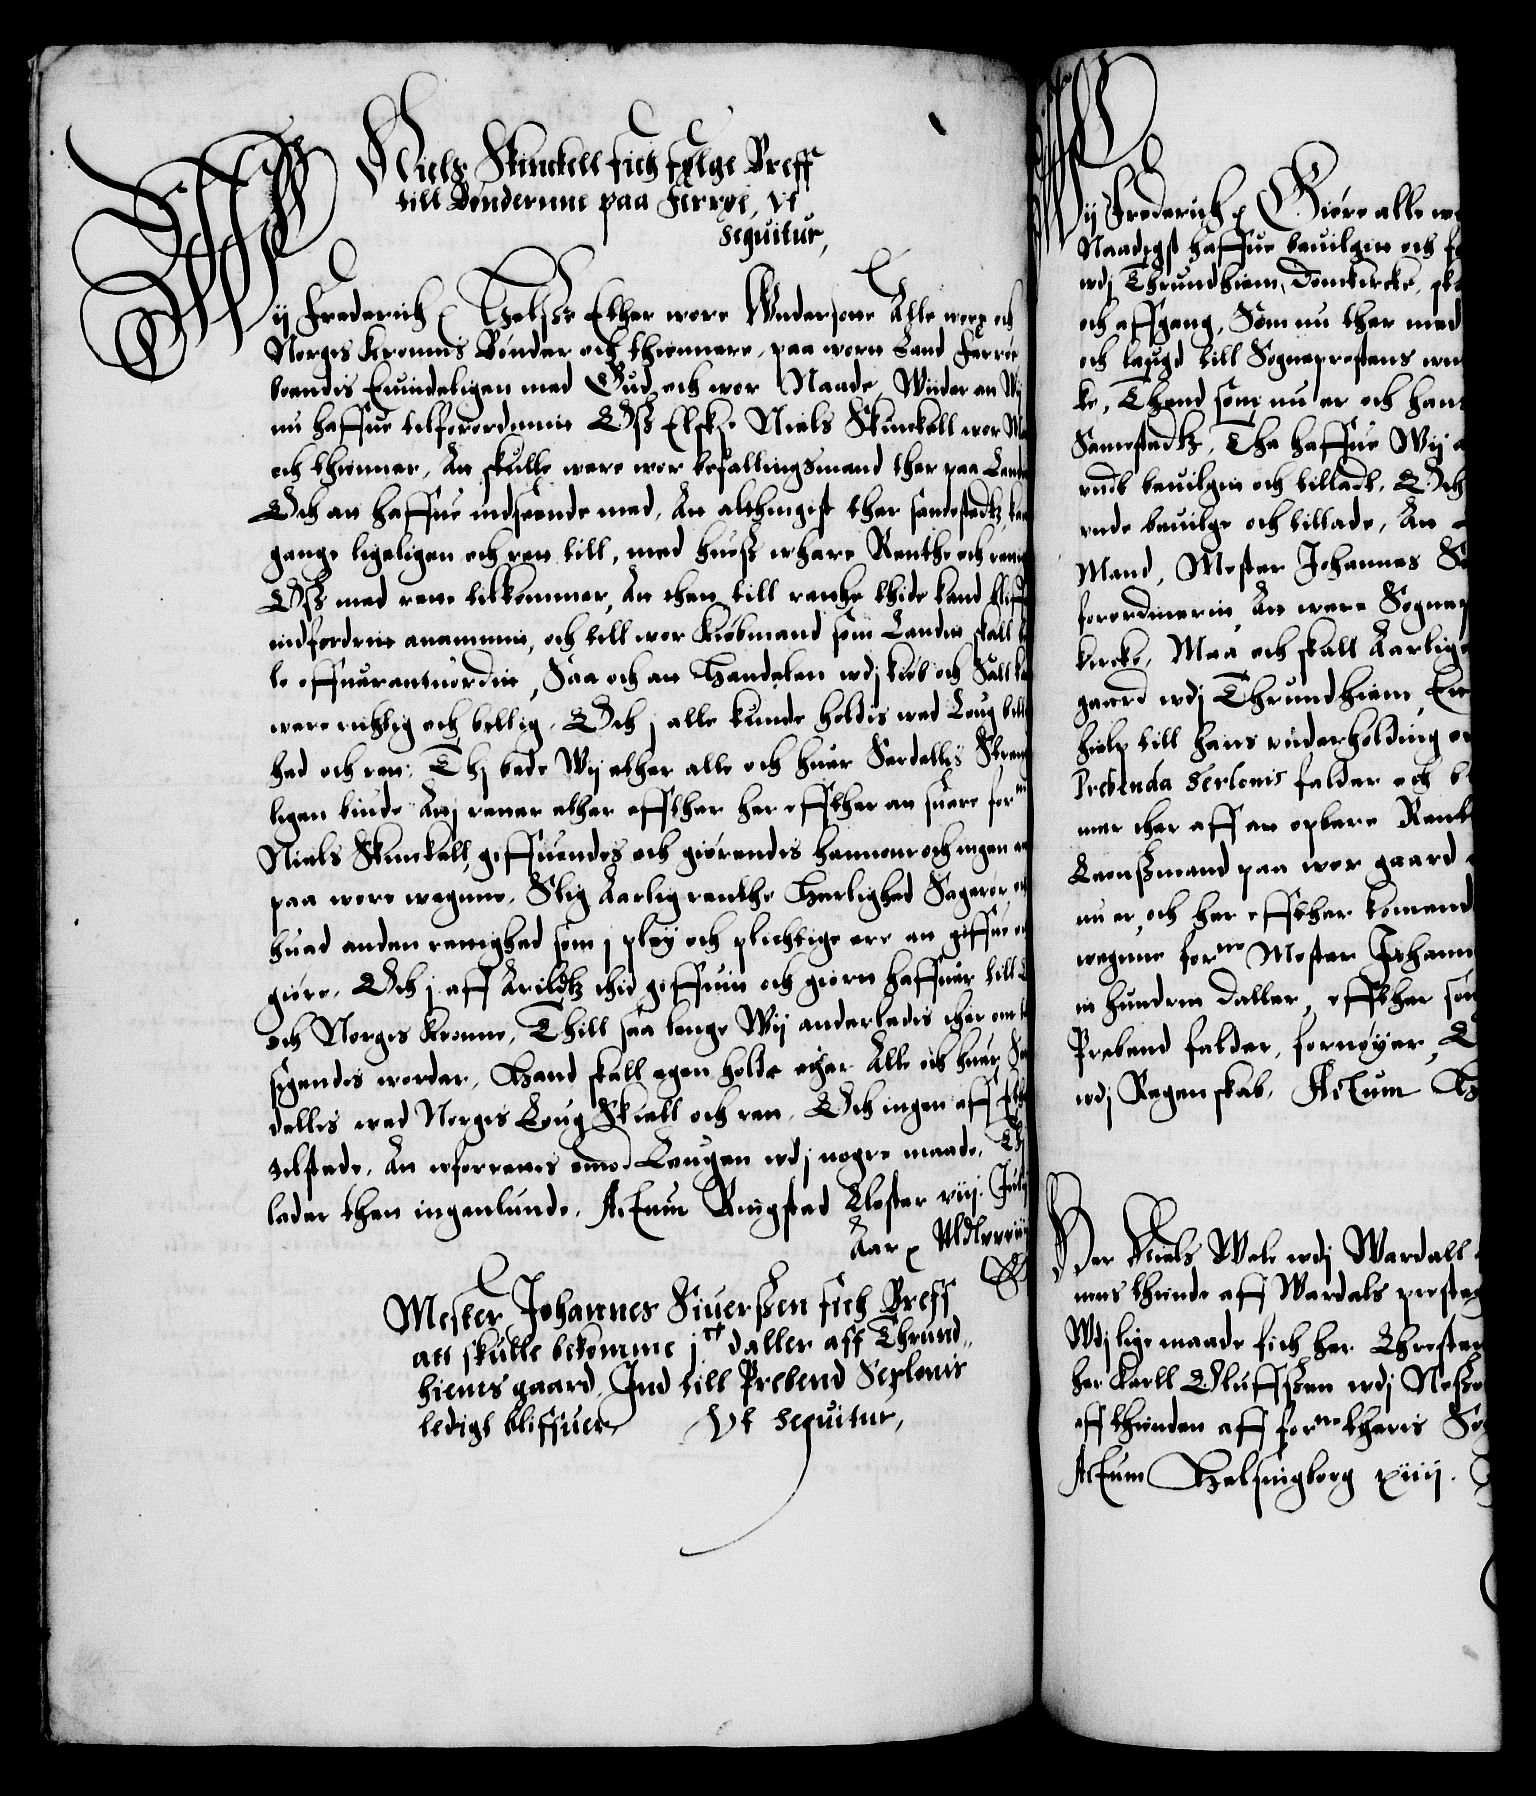 Niels Skinckell fich følge Breff
till Bøndernne paa Ferrøe, Vt
sequitur,
Wij Frederich etc Helsse Ether wore Wndersotte Alle wore och
Norges Kronnes Bønder och thiennere, paa wortt Land Ferrøe
boendis Euindeligen med Gud och wor Naade, Wiider att Wij
nu haffue tilforordennit Oss Elske Niels Skinckell wor Ma
och thienner, At skulle were wor befallingsmand ther paa Land
Och att haffue indseende med, At althingist ther samestedtz, ka
gange ligeligen och ret till, med huess whare Renthe och retti
Oss med rette tilkommer, At then till retthe thide kand bliff
indfordrit anammit, och till wor Kiøbmand som Landit skall b
le offuerantuordit, Saa och at Handelen wdj kiøb och Sall ka
were richtig och billig. Och j alle kunde holdis wed Loug bill
hed och ret. Thj bede Wij ether alle och huer Serdellis Streng
ligen biude At j retter ether effther her effther at suare for^ne
Niels Skinckell, giffuendes och giørendis hannom och ingen an
paa wore wegnne, Slig Aarlig renthe Herlighed Sagerør, och
huad anden rettighed som j pleÿ och plichtige ere att giffue och
giøre, Och j aff Arildtz thid giffuit och giort haffuer till
och Norges Kronne, Thill saa lenge Wij anderledis ther om t
sigendes worder, Hand skall egen holde ether Alle och huer, Ser
dellis wed Norges Loug Skiell och ret, Och ingen aff ether
tilstede, At uforrettes emod Lougen wdj nogre maade, Thj
lader thett ingenlunde. Actum Ringsted Closter viij. Julij
Aar etc Mdlxxxiij
Mester Johannes Siuerssen fich Breff
att skulle bekomme j^c daller aff Thrund,,
hiems gaard, Ind till Prebend Serlouis
ledigt bliffuer, Vt sequitur,
Wij Frederich etc Giøre alle w
Naadigst haffue beuilgit och f
wdj Thrundhiem, Domkircke, sk
och affgang, Som nu ther med
och laugd till Sogneprestens un
ke, Thend som nu er och hans
Samestedtz, Tha haffue Wij a
undt beuilgit och tilladt, Och
unde beuilge och tillade, At
Mand, Mester Johannes S
forordinerit, At were Sognep
kircke, Maa och skall Aarlige
gaard wdj Thrundhiem, Et
hielp till hans underholding o
Prebenda Serlouis falder och b
mer ther aff at opbere Rent
Lenssmand paa wor gaard
nu er, och her effther komend
wegnne for^ne Mester Johann
it hundret daller, effther som
Prebend falder, fornøyer,
wdj Regenskab. Actum
Her Niels Wole wdj Wardall
nnes thiende aff Wardals presteg
Wdj lige maade fich her Chresten
her Karll Oluffssen wdj Nesse
aff thienden aff for^ne theris So
Actum Helsingborg xiiij.